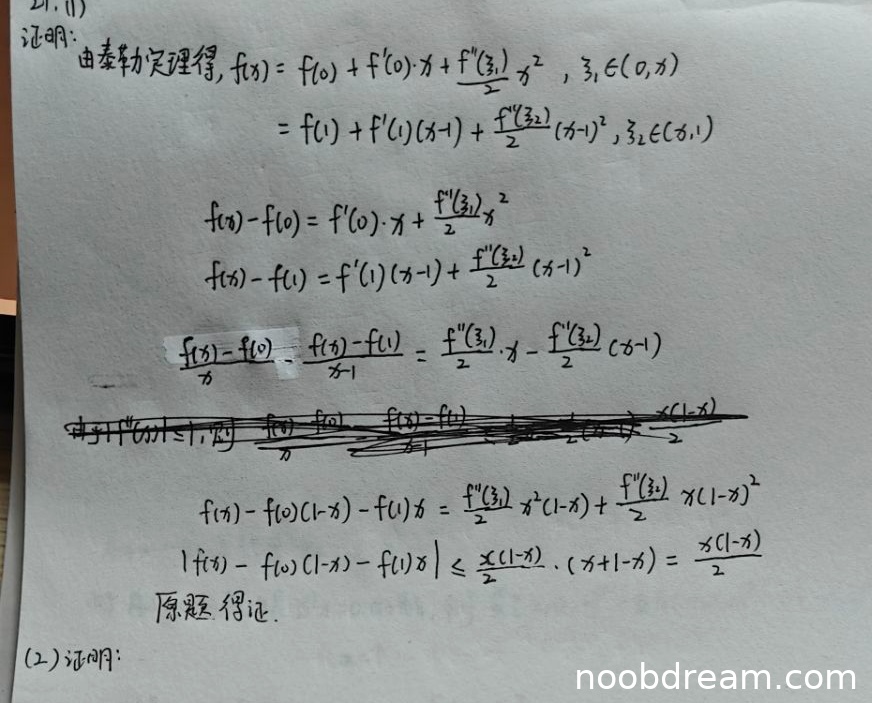 21.(1)
证明:
由泰勒定理得, f(x) = f(0) + f'(0)·x + f''(ξ₁)/2 x² , ξ₁∈(0,x)
= f(1) + f'(1)(x-1) + f''(ξ₂)/2 (x-1)² , ξ₂∈(x,1)
f(x) - f(0) = f'(0)·x + f''(ξ₁)/2 x²
f(x) - f(1) = f'(1)(x-1) + f''(ξ₂)/2 (x-1)²
(f(x)-f(0))/x - (f(x)-f(1))/(x-1) = f''(ξ₁)/2 ·x - f''(ξ₂)/2 (x-1)
x(1-x)/2
f(x) - f(0)(1-x) - f(1)x = f''(ξ₁)/2 x²(1-x) + f''(ξ₂)/2 x(1-x)²
|f(x) - f(0)(1-x) - f(1)x| ≤ x(1-x)/2 ·(x+1-x) = x(1-x)/2
原题得证.
(2)证明:
noobdream.com